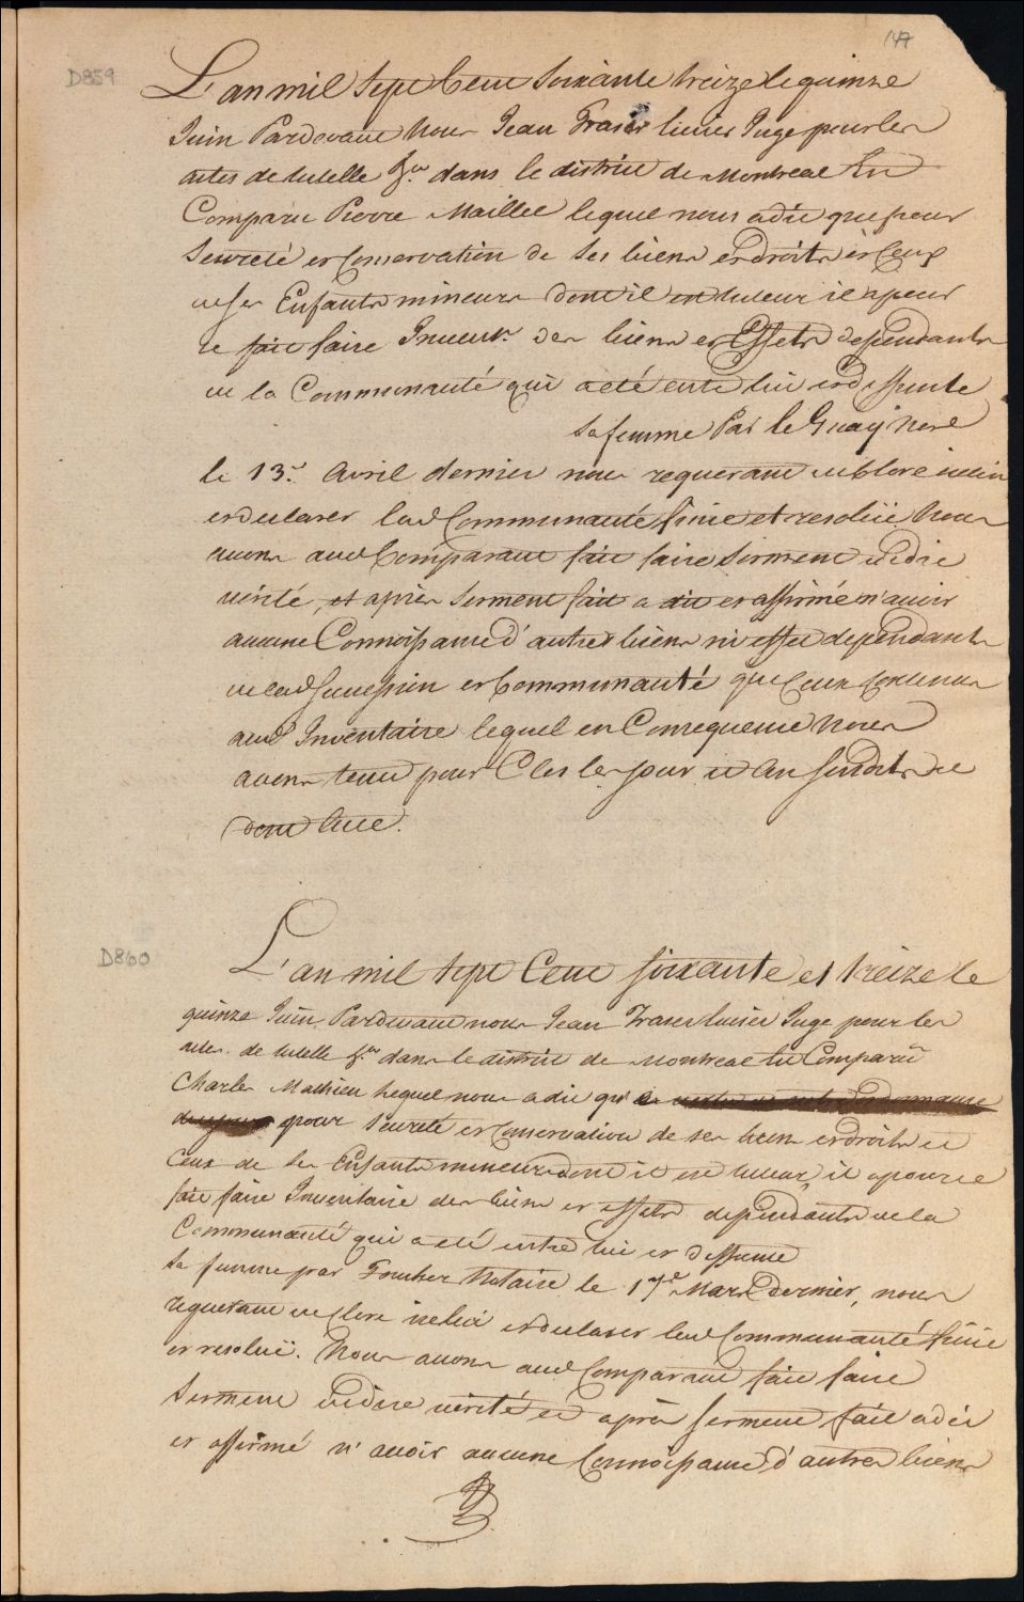 147
D859
L'an mil sept Cent soixante treize le quinze
Juin Pardevant Nous Jean Fraser Juge pour les
actes de tutelle &ca dans le district de Montreal Est
Comparu Pierre Maillet lequel nous a dit que pour
seureté et Conservation de ses biens et droits et Ceux
de ses Enfants mineurs dont il est tuteur il a pour
ce fait faire Invent.re des biens et Effets dependants
de la Communauté qui a eté entre lui et deffunte
sa femme Par le Guay Nore
le 13.e Avril dernier nous requerant de Clore icelui
et declarer lad Communauté finie et resolüe Nous
avons aud Comparant fait faire serment de dire
verité, et après serment fait a dit et affirmé n'avoir
aucune Connoissance d'autres biens ni effet dependants
de lad Succession et Communauté que Ceux Contenus
aud Inventaire lequel en Consequence Nous
avons tenu pour Clos les jour et An susdits
dont Acte.
D860
L'an mil sept Cent soixante et treize le
quinze Juin Pardevant nous Jean Fraser Juge pour les
actes de tutelle &ca dans le district de Montreal est Comparu
Charles Mathieu lequel nous a dit que
pour seureté et Conservation de ses biens et droits et
Ceux de ses Enfants mineurs dont il est tuteur, il a pour ce
fait faire Inventaire des biens et effets dependants de la
Communauté qui a eté entre lui et deffunte
sa femme par Foucher Notaire le 17e Mars dernier, nous
requerant de Clore icelui et declarer lad Communauté finie
et resolüe. Nous avons aud Comparant fait faire
serment de dire verité et après serment fait a dit
et affirmé n'avoir aucune Connoissance d'autres biens